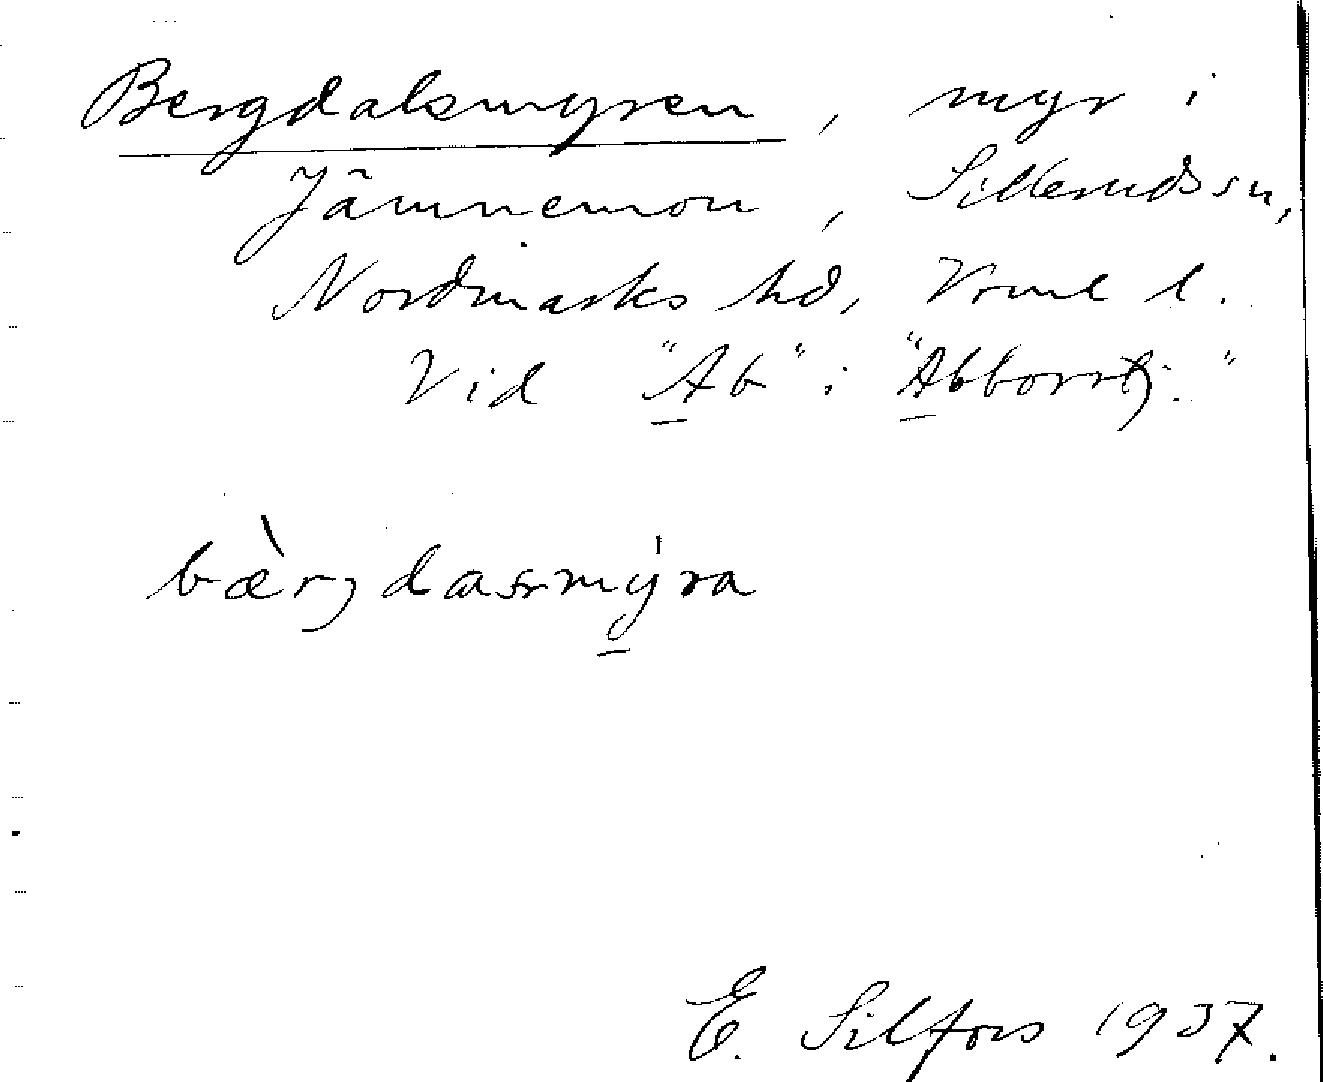 Bergdalsmyren, myr i
Jämnemon, Sillerudssn,
Nordmarks hd, Vrml l.
Vid "Ab" i "Abborrtj."
bæ̀rjdasmýra
E. Silfors 1937.